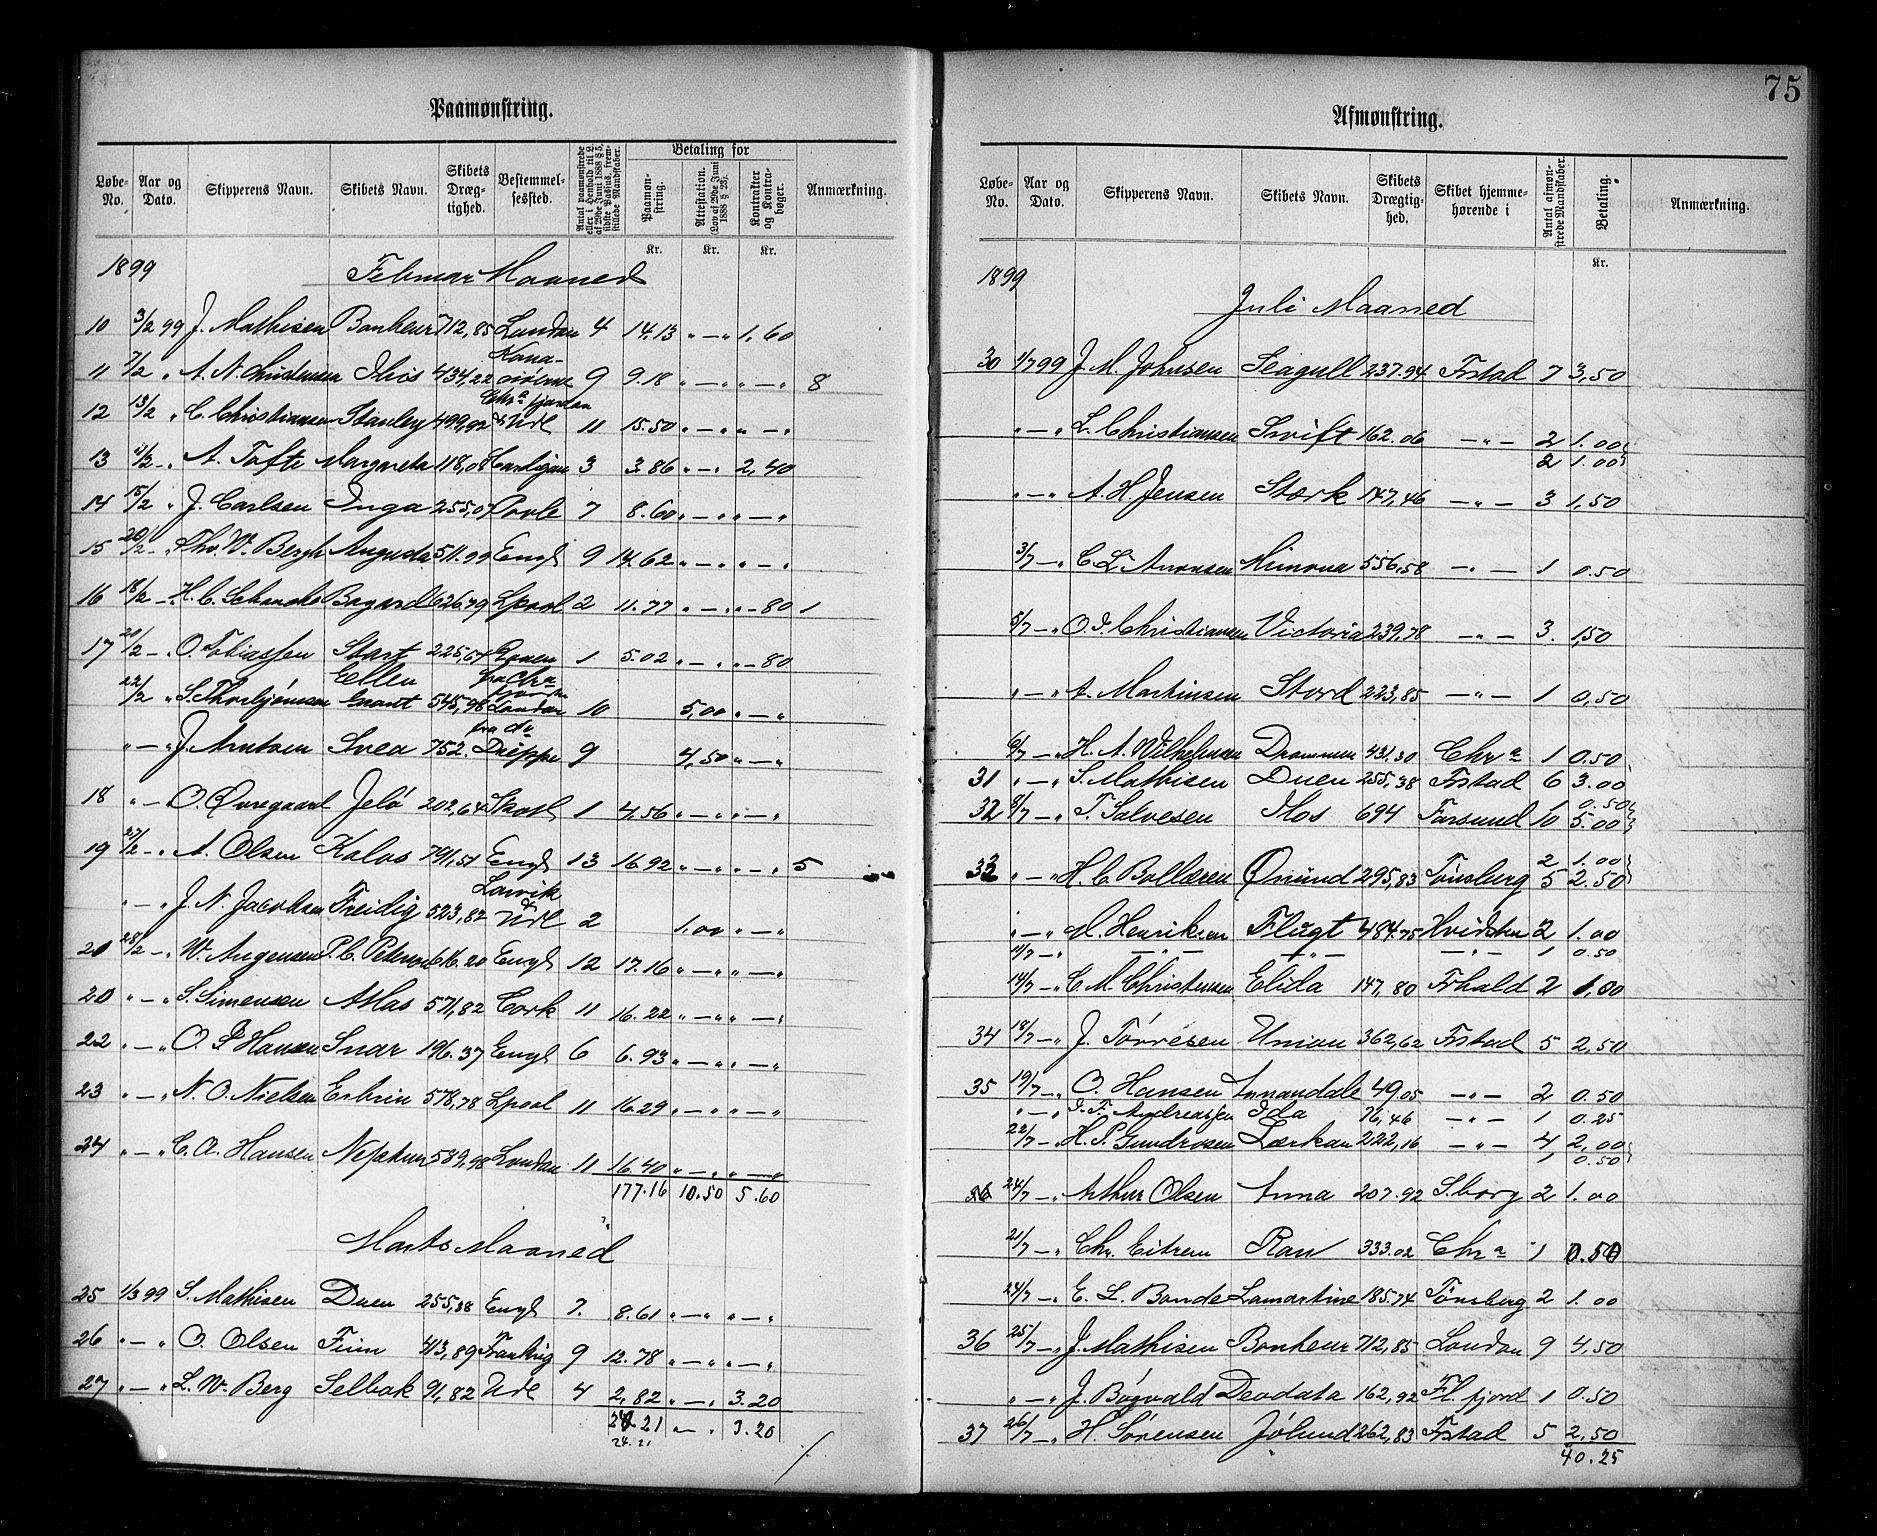 75
Paamønstring.
Løbe-No. Aar og Dato. Skipperens Navn. Skibets Navn. Skibets Dræg-tighed. Bestemmel-sessted. Antal paamønstrede eller i Henhold til L. af 29de Juni 1888 § 5, sidste Passus, frem-stillede Mandskaber. Betaling for Paamøn-string. Attestation. (Lov af 29de Juni 1888 § 26). Kontrakter og Kontra-bøger. Anmærkning.
Kr. Kr. Kr.
1899 Februar Maaned
10 3/2 99 J. Mathisen Bonheur 712,85 London 4 14.13 " — " 1,60
11 7/2 " A. N. Christensen 434,22 9 9.18 " — " " — " 8
12 13/2 " C. Christiansen Stanley 499,92 Chr.a fjorden & Udl 11 15.50 " — " " — "
13 "/2 — " A. Tofte Margreta 118,08 Cardigan 3 3.86 " — " 2,40
14 15/2 " J. Carlsen Inga 255,07 Poole 7 8.60 " — " " — "
15 20/2 — " Thv. W. Bergh Augusta 511.99 Engl 9 14.62 " — " " — "
16 18/2 — " H. C. Bagard 626.79 Lpool 2 11.77 " — " " — 80 1
17 20/2 — " O. Tobiassen Start 225,64 1 5.02 " — " " — 80
22/2 " S. Thorbjørnsen Ellen Grant 545,98 fra Chra fjorden London 10 5,00 " — "
" — " J. Arntzen Svea 752. fra do Dieppe 9 4,50 " — "
18 " — " O. Øvregaard Jelø 202,64 Skotl 1 4,56 " — " " — "
19 27/2 — " A. Olsen Kalos 791,51 Engl 13 16.92 " — " " — " 5
" — " J. N. Jacobsen Freidig 523,82 Larvik & Udl 2 1.00 " — "
20 28/2 — " W. Jørgensen P. C. Petersen 616.20 Engl 12 17.16 " — " " — "
20 " — " S. Simensen Atlas 571,82 Cork 11 16.22 " — " " — "
22 " — " O. P. Hansen Snar 196.37 Engl 6 6.93 " — " " — "
23 " — " N. O. Nielsen Esbrin 578,78 Lpool 11 16.29 " — " " — "
24 " — " C. A. Hansen Neptun 589,98 London 11 16.40 " — " " — "
177.16 10.50 5.60
Marts Maaned
25 1/3 99 S. Mathisen Duen 255,38 Engl 7. 8.61 " — " " — "
26 " — " O. Olsen Finn 413,89 Frankrig 9 12.78 " — " " — "
27 " — " L. W. Berg Selbak 91,82 Udl 4 2,82 " — " 3.20
24.21 " — " 3.20
24.21
Afmønstring.
Løbe-No. Aar og Dato. Skipperens Navn. Skibets Navn. Skibets Drægtig-hed. Skibet hjemme-hørende i Antal afmøn-strede Mandskaber. Betaling. Anmærkning.
Kr.
1899
Juli Maaned
30 1/7 99 J. M. Johnsen Seagull 237.94 Frstad 7 3,50
" — " L. Christiansen Swift 162.06 — " — 2 1.00
2 1.00
" — " A. H. Jensen Stærk 147,46 — " — 3 1,50
3/7 — " C. L. Aronsen Minona 556,58 — " — 1 0.50
5/7 — " O. J. Christiansen Victoria 239.78 — " — 3. 1,50
" — " A. Martinsen Stord 223,85 — " — 1 0,50
6/7 — " H. A. Wilhelmsen Drammen 431.30 Chr a 1 0.50
31 " — " S. Mathisen Duen 255,38 Frstad 6 3.00
1 0.50
32 8/7 — " T. Salvesen Ilos 694 Farsund 10 5.00
2 1.00
33 " — " H. C. Bollæren Ønund 295,83 Tønsberg 5 2.50
" — " M. Henriksen Flugt 484.75 Hvidsten 2 1.00
11/7 — " — " — — " — — " — 1 0.50
14/7 — " C. M. Christensen Elida 147,80 Frhald 2 1,00
34 18/7 — " J. Tørresen Union 362,62 Frstad 5 2,50
35 19/7 — " O. Hansen Annandale 49.05 — " — 2 0.50
" — " J. F. Andreassen Ida 76,46 — " — 1 0.25
22/7 — " H. P. Gundrosen Lærkan 222,16 — " — 4, 2,00
1 0.50
24/7 — " Arthur Olsen Anna 207.92 S.borg 2 1.00
21/7 — " Chr. Eitrem Ran 333.02 Chr a 1 0.50
24/7 — " E. L. Bonde Lamartine 185.74 Tønsberg 2 1.00
36 25/7 — " J. Mathisen Bonheur 712,85 London 9 4,50
" — " J. Bøgvald Deodata 162,92 Fl. fjord 1 0.50
37 26/7 — " H. Sørensen Jølund 262,83 Frstad 5 2,50
40.25